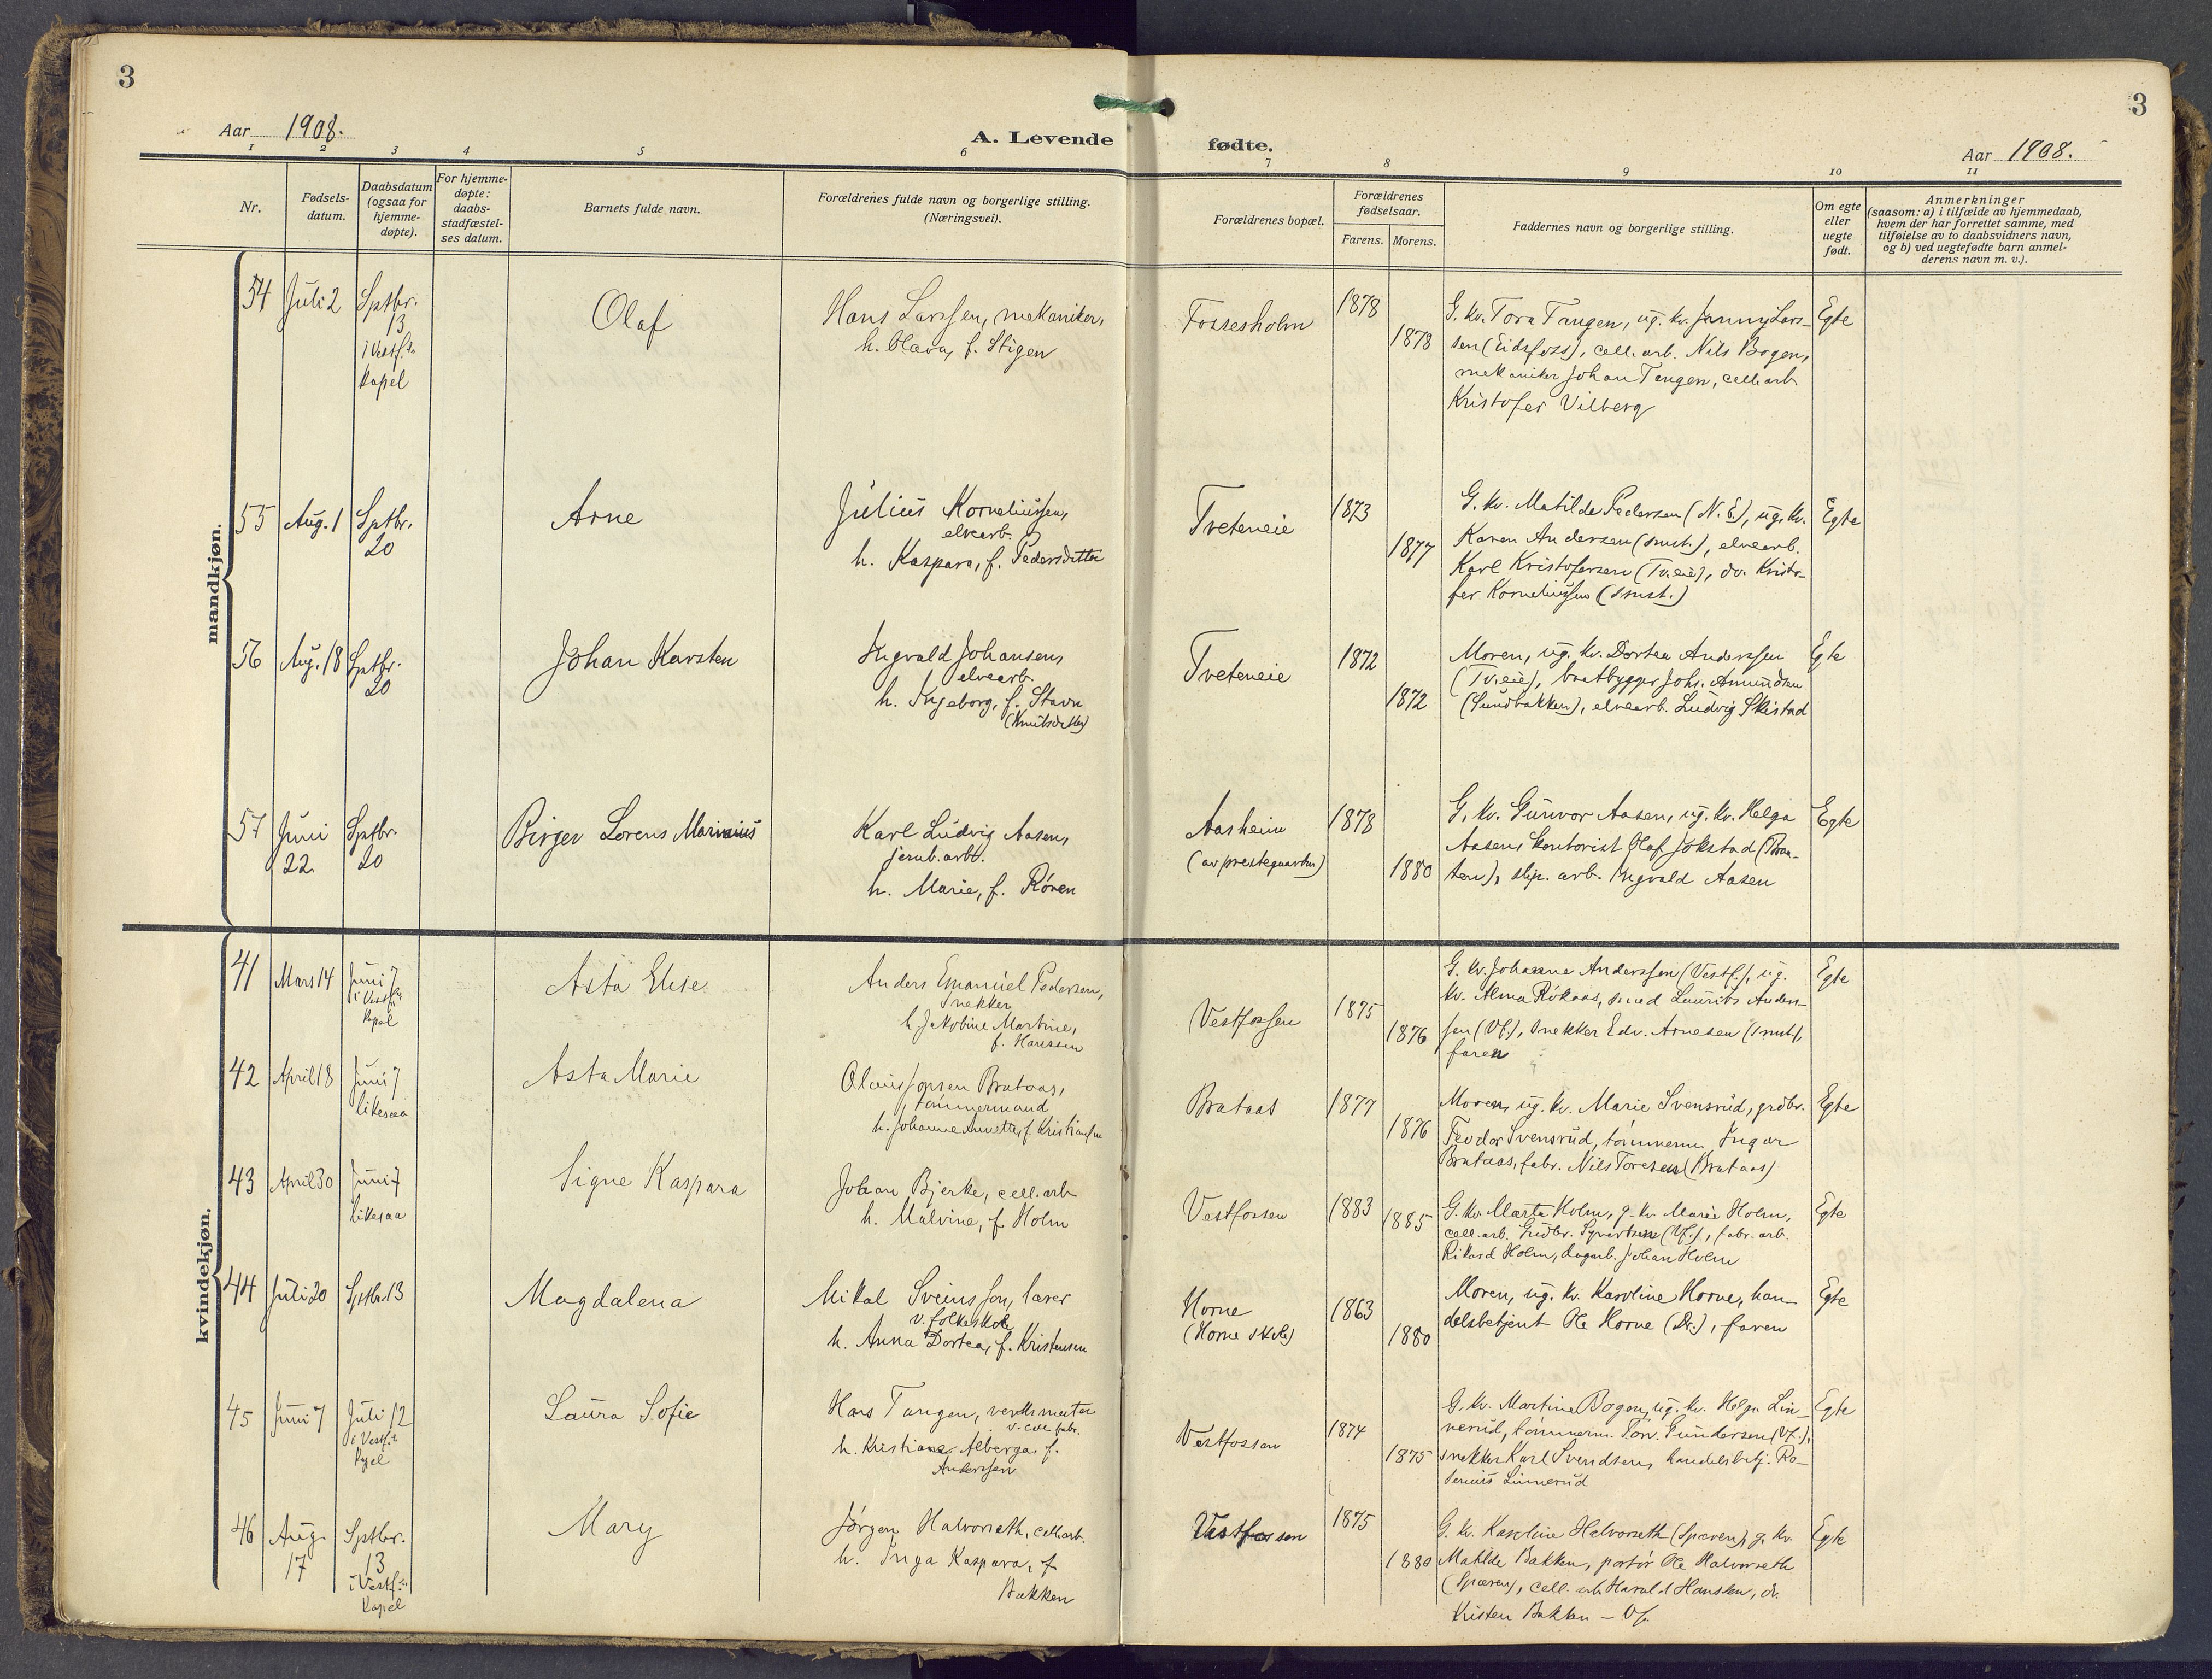 3
3
Aar 1908.
A. Levende fødte.
Aar 1908.
1 2 3 4 5 6 7 8 9 10 11
Nr.
Fødsels-
datum.
Daabsdatum
(ogsaa for
hjemme-
døpte).
For hjemme-
døpte:
daabs-
stadfæstel-
ses datum.
Barnets fulde navn.
Forældrenes fulde navn og borgerlige stilling.
(Næringsvei).
Forældrenes bopæl.
Forældrenes
fødselsaar.
Farens. Morens.
Faddernes navn og borgerlige stilling.
Om egte
eller
uegte
født.
Anmerkninger
(saasom: a) i tilfælde av hjemmedaab,
hvem der har forrettet samme, med
tilføielse av to daabsvidners navn,
og b) ved uegtefødte barn anmel-
derens navn m. v.).
mandkjøn.
54
Juli 2
Sptbr.
13
i Vestf.
kapel
Olaf
Hans Larssen, mekaniker,
h. Olava, f. Stigen
Fossesholm
1878
1878
G. kv. Tora Tangen, ug. kv. Jenny Lars-
sen (Eidsfoss), cell. arb. Nils Bogen,
mekaniker Johan Tangen, cell. arb.
Kristofer Vilberg
Egte
55
Aug. 1
Sptbr.
20
Arne
Julius Korneliussen,
elvearb.
h. Kaspara, f. Pedersdatter
Tveteneie
1873
1877
G. kv. Matilde Pedersen (N. E.), ug. kv.
Karen Andersen (smst.), elvearb.
Karl Kristofersen (Tv.eie), do. Kristo-
fer Korneliussen (smst.)
Egte
56
Aug. 18
Sptbr.
20
Johan Karsten
Ingvald Johansen,
elvearb.
h. Ingeborg, f. Stavn
(Knutsdatter)
Tveteneie
1872
1872
Moren, ug. kv. Dortea Anderssen
(Tv.eie), baatbygger Johs. Amundsen
(Sundbakken), elvearb. Ludvig Skistad
Egte
57
Juni
22
Sptbr.
20
Birger Lorens Marinius
Karl Ludvig Aasen,
jernb. arb.
h. Marie, f. Røren
Aasheim
(av prestegaarden)
1878
1880
G. kv. Gunvor Aasen, ug. kv. Helga
Aasen, kontorist Olaf Jokstad (Braa-
ten), slip. arb. Ingvald Aasen
Egte
kvindekjøn.
41
Mars 14
Juni 7
i Vestf.
kapel
Asta Elise
Anders Emanuel Pedersen,
snekker
h. Jakobine Martine,
f. Hanssen
Vestfossen
1875
1876
G. kv. Johanne Anderssen (Vestf.), ug.
kv. Alma Røkaas, smed Laurits Anders-
sen (Vf.), snekker Edv. Arnesen (smst.),
faren
Egte
42
April 18
Juni 7
likesaa
Asta Marie
Olaus Jonsen Brataas,
tømmermand
h. Johanne Annette, f. Kristiansen
Brataas
1877
1876
Moren, ug. kv. Marie Svensrud, grdbr.
Teodor Svensrud, tømmerm. Ingar
Brataas, fabr. Nils Toresen (Brataas)
Egte
43
April 30
Juni 7
likesaa
Signe Kaspara
Johan Bjerke, cell. arb.
h. Malvine, f. Holm
Vestfossen
1883
1885
G. kv. Marta Holm, g. kv. Marie Holm,
cell. arb. Gudbr. Syvertsen (Vf.), fabr. arb.
Rikard Holm, dagarb. Johan Holm
Egte
44
Juli 20
Sptbr. 13
Magdalena
Mikal Sveinsson, lærer
v. folkeskole
h. Anna Dortea, f. Kristensen
Horne
(Horne skole)
1863
1880
Moren, ug. kv. Karoline Horne, han-
delsbetjent Ole Horne (Dr.), faren
Egte
45
Juni 7
Juli 12
i Vestf.
kapel
Laura Sofie
Hans Tangen, verksmester
v. cell. fabr.
h. Kristiane Alberga, f.
Anderssen
Vestfossen
1874
1875
G. kv. Martine Bogen, ug. kv. Helga Lin-
nerud, tømmerm. Torv. Gundersen (Vf.),
snekker Karl Svendsen, handelsbetj. Ro-
senius Linnerud
Egte
46
Aug.
17
Sptbr.
13
i Vestf.
kapel
Mary
Jørgen Halvorseth, cell. arb.
h. Inga Kaspara, f.
Bakken
Vestfossen
1875
1880
G. kv. Karoline Halvorseth (Spæren), g. kv.
Matilde Bakken, portør Ole Halvorseth
(Spæren), cell. arb. Harald Hanssen, do.
Kristen Bakken – Vf.
Egte